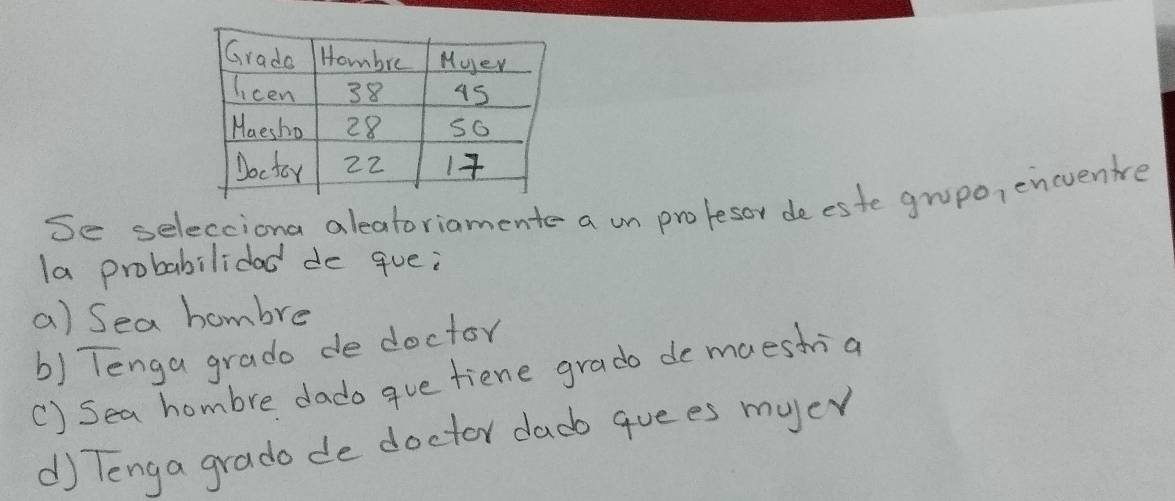 Grado Hombre Mujer
licen 38 45
Maestro 28 50
Doctor 22 17
Se selecciona aleatoriamente a un profesor de este grupo, encuentre
la probabilidad de que:
a) Sea hombre
b) Tenga grado de doctor
c) Sea hombre dado que tiene grado de maestria
d) Tenga grado de doctor dado que es mujer